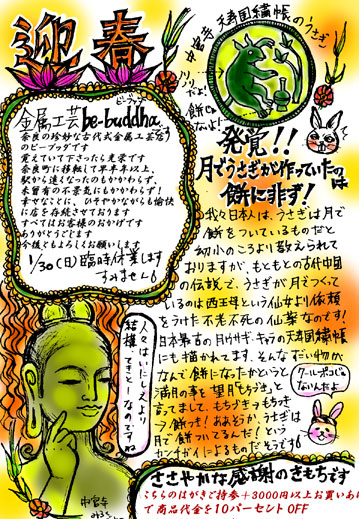 迎春
中宮寺
天寿国繡帳のうさぎ
金属工芸be-buddha
ビーブッダ
奈良の珍妙な古代式金属工芸店
のビーブッダです
覚えていて下さったら光栄です
奈良町に移転して早半年以上
駅から遠くなったのもかかわらず、
未曽有の不景気にもかかわらず!
幸せなことに、ひそやかながらも愉快
に店を存続させております
すべてはお客様のおかげです
ありがとうございます
今後ともよろしくお願いします
1/30(日)臨時休業します
すみません
発覚!!
月でうさぎが作っていたのは
餅に非ず!
我々日本人は、うさぎは月で
餅をついているものだと
幼少のころより教えられて
おりますが、もともとの古代中国
の伝説で、うさぎが月でつくって
いるのは西王母という仙女より依頼
をうけた不老不死の仙薬なのです!
日本最古の月ウサギ・キャラの天寿国繡帳
にも描かれてます。そんなだいじな物が
なんで餅になったかというと
満月の事を望月(もちづき)と
言ってまして、もちづき→もちつき
→餅っ!あぁそうか、うさぎは
月で餅ついてるんだ!という
カンチガイによるものだそうです
クールポコじゃ
ないんだよ
人々はいにしえより
結構てきとーなのですね
中宮寺
みろく
ささやかな感謝のきもちです
こちらのはがきご持参+3000円以上お買いあげ
で商品代金を10パーセントOFF